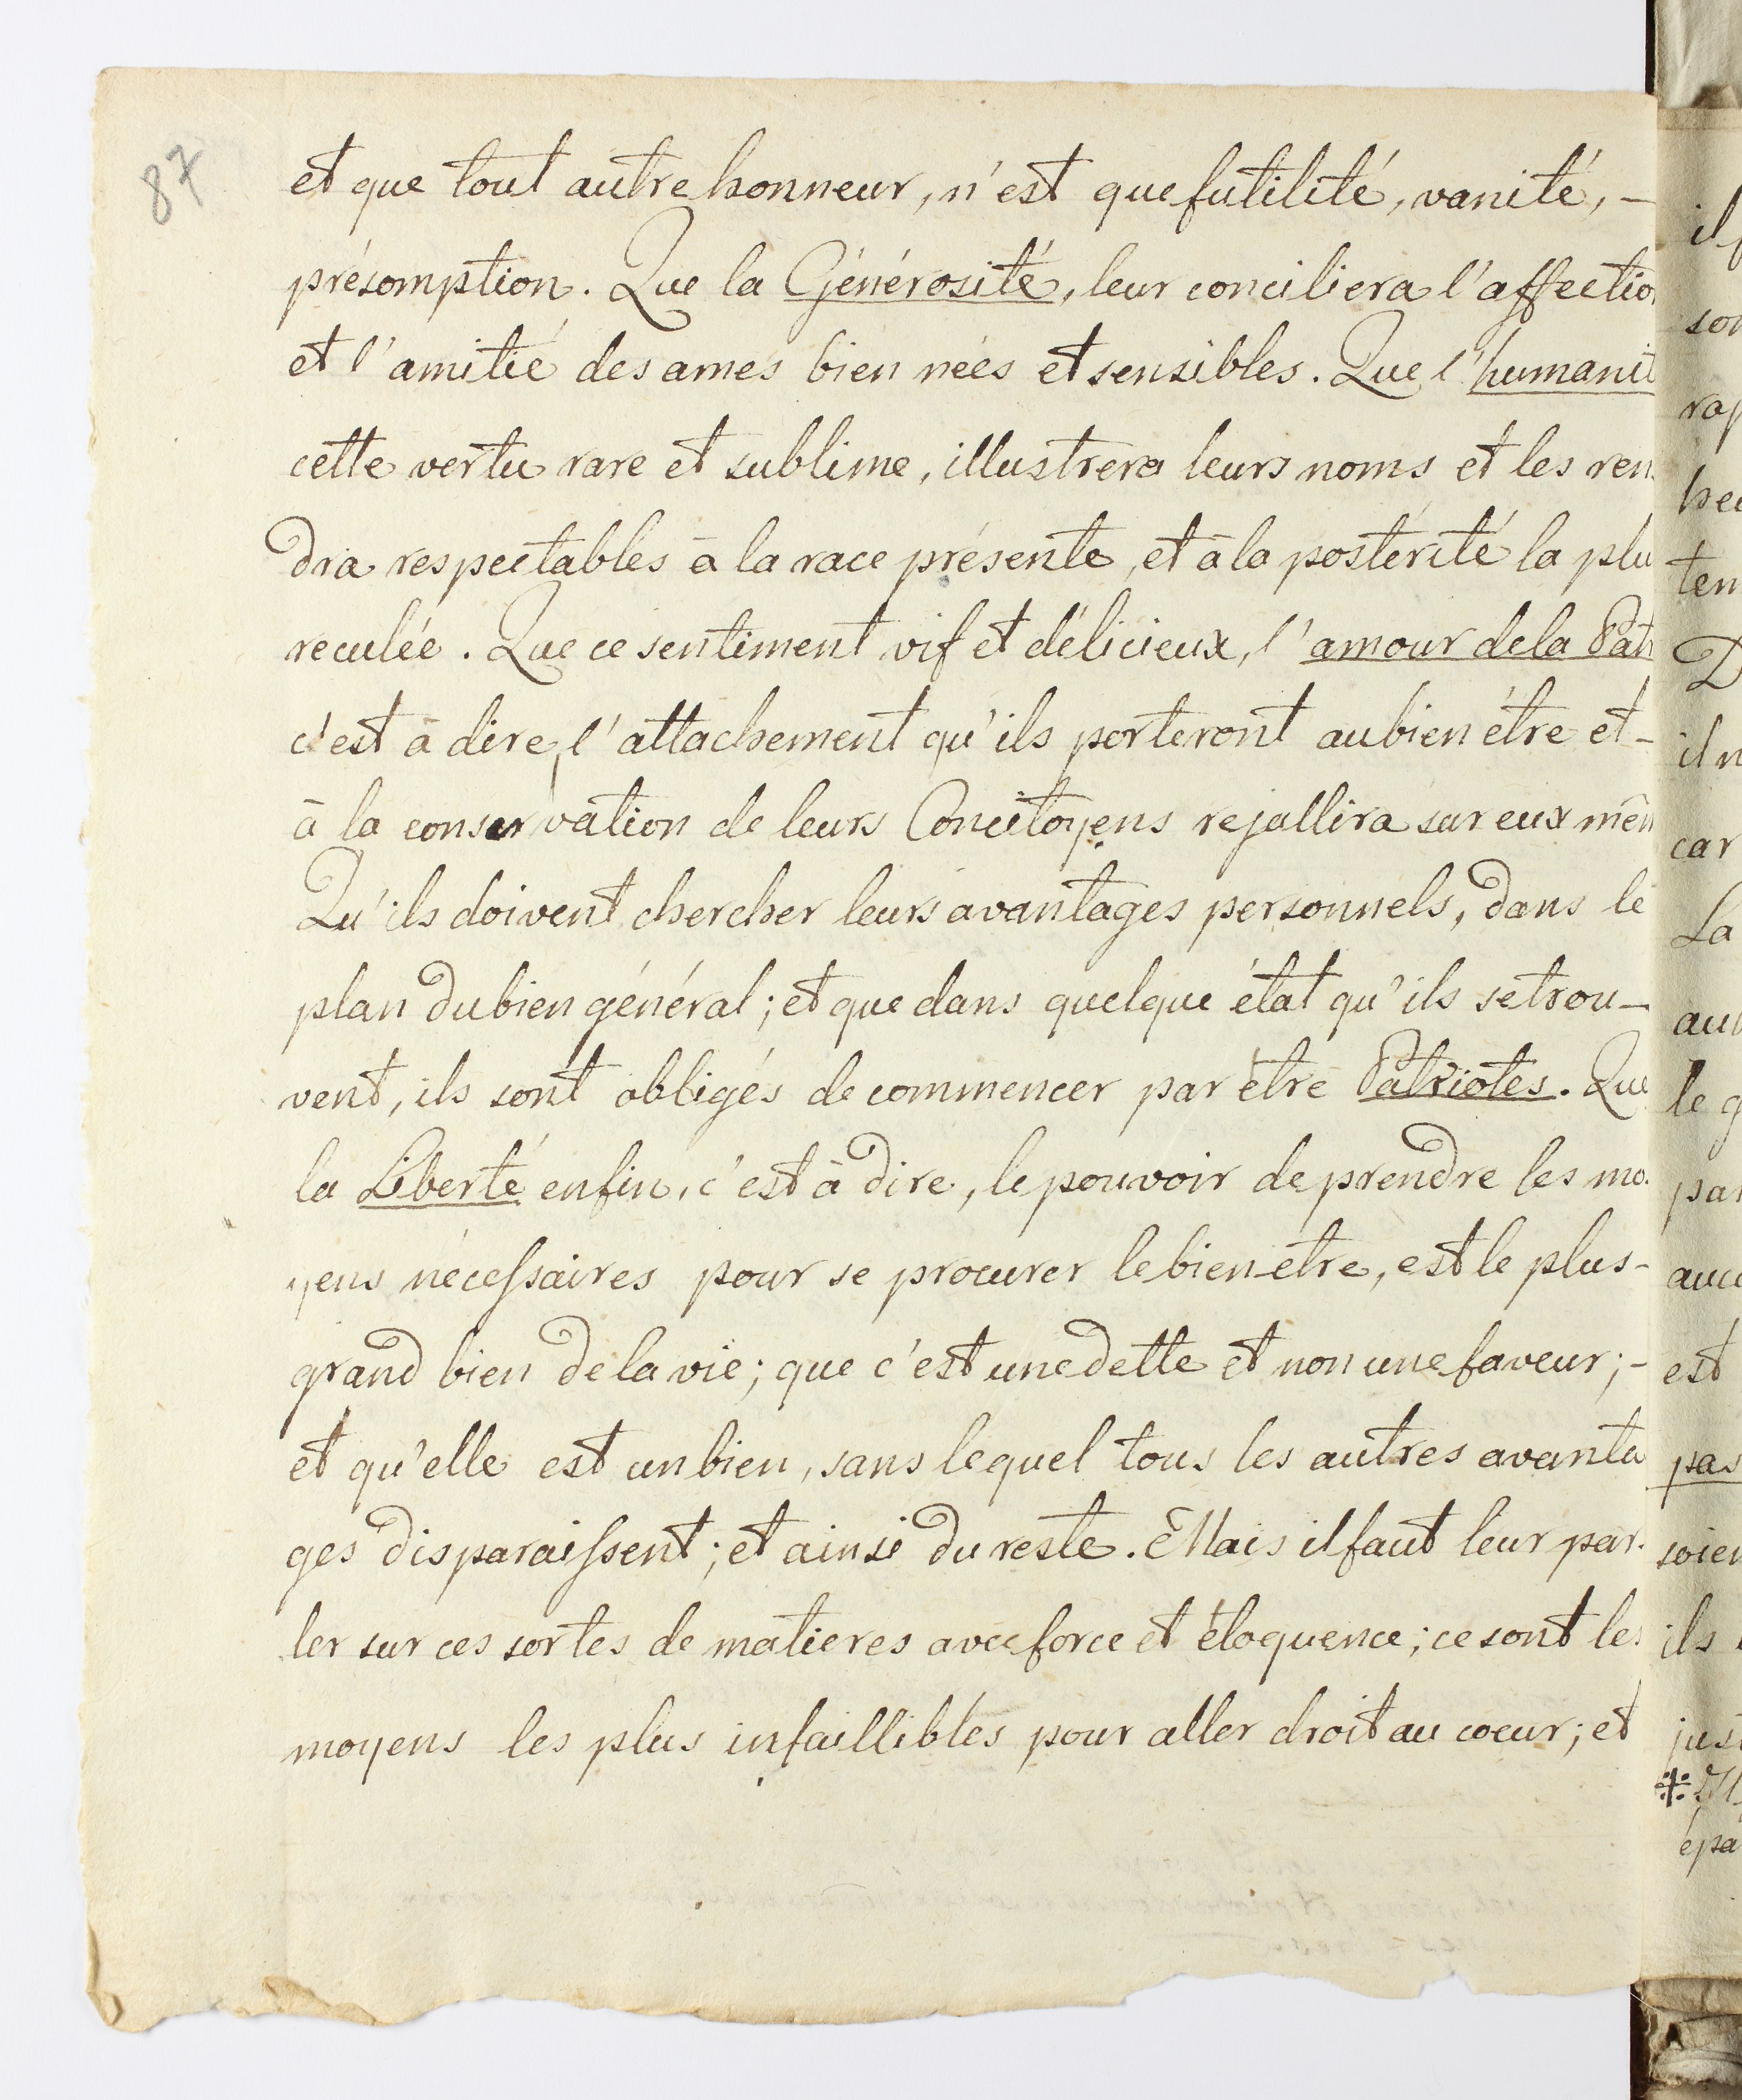 87
et que tout autre honneur, n'est que futilité, vanité, -
présomption. Que la Générosité, leur conciliera l'affectio
et l'amitié des ames bien nées et sensibles. Que l'humanit
cette vertu rare et sublime, illustrera leurs noms et les ren
dra respectables à la race présente, et à la postérité la plu
reculée. Que ce sentiment vif et délicieux, l'amour de la Patr
c'est à dire, l'attachement qu'ils porteront au bien étre et -
à la conservation de leurs Concitoyens rejallira sur eux mêm
Qu'ils doivent chercher leurs avantages personnels, dans le
plan du bien général; et que dans quelque état qu'ils se trou-
vent, ils sont obligés de commencer par être Patriotes. Que
la Liberté enfin, c'est à dire, le pouvoir de prendre les mo.
yens nécessaires pour se procurer le bien-etre, est le plus -
grand bien de la vie; que c'est une dette et non une faveur; -
et qu'elle est un bien, sans lequel tous les autres avanta
ges disparaissent; et ainsi du reste. Mais il faut leur par.
ler sur ces sortes de matieres avec force et éloquence; ce sont les
moyens les plus infaillibles pour aller droit au coeur; et
il
son
rap
heu
ten
D
il n
car
La
au
le g
par
aucu
est
pas
soien
ils
just
épa